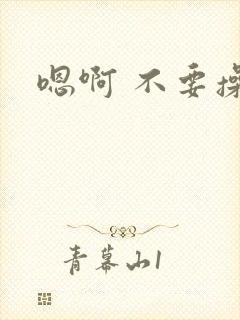 嗯啊 不要操
青幕山1